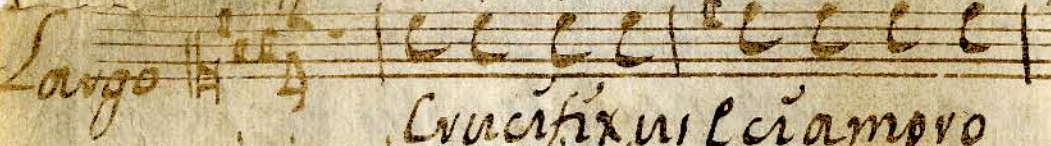 Largo
Crucifixus eciampro